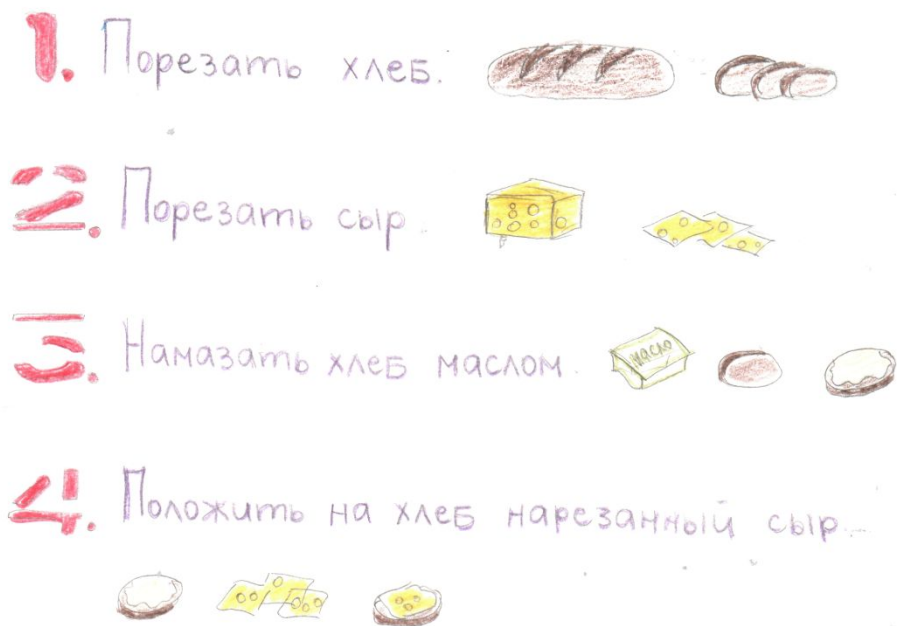 1. Порезать хлеб.
2. Порезать сыр.
3. Намазать хлеб маслом.
масло
4. Положить на хлеб нарезанный сыр.